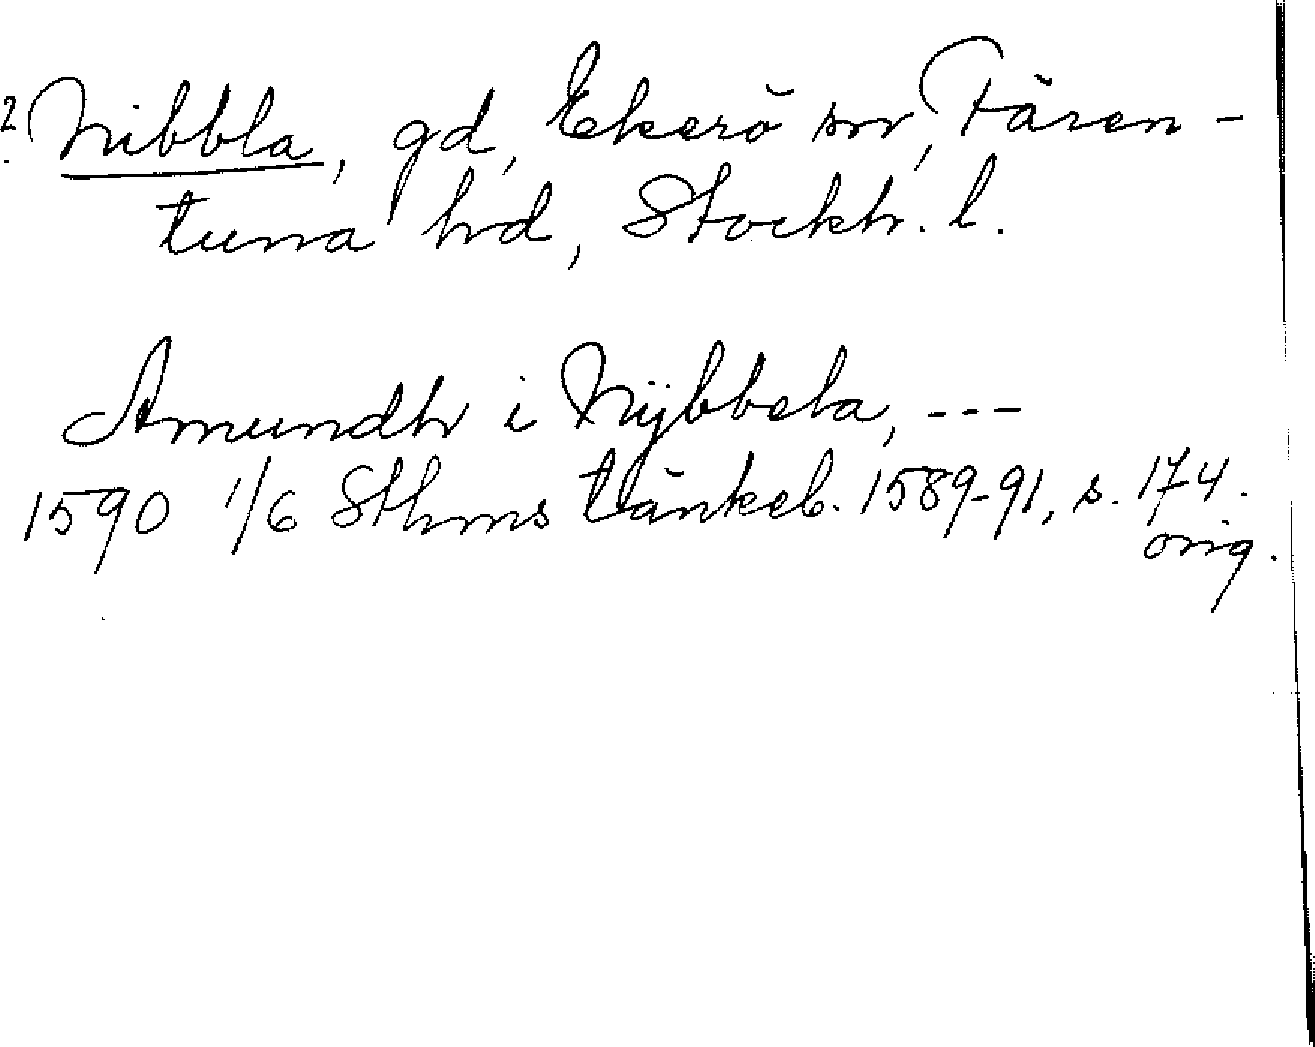 ? Nibbla, gd, Ekerö sn, Fären-
tuna hd, Stockh. l.
Amundh i Nÿbbela, ---
1590 1/6 Sthms tänkeb. 1589-91, s. 174.
orig.